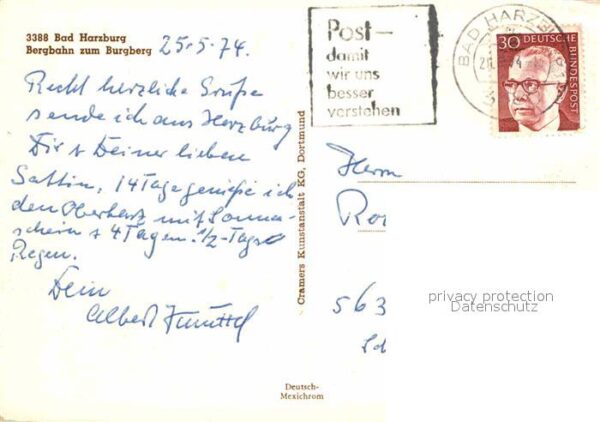 3388 Bad Harzburg
Bergbahn zum Burgberg
25.5.74.
Recht herzliche Grüße
sende ich aus Harzburg
Dir + Deiner lieben
Gattin, 14 Tage genieße ich
den Oberharz mit Sonnen-
schein + 4 Tagen 1/2-Tags
Regen.
Dein
Albert
Cramers Kunstanstalt KG, Dortmund
Deutsch-
Mexichrom
Post –
damit
wir uns
besser
verstehen
BAD HARZB
30 DEUTSCHE
BUNDESPOST
Herrn
Ro
563
privacy protection
Datenschutz